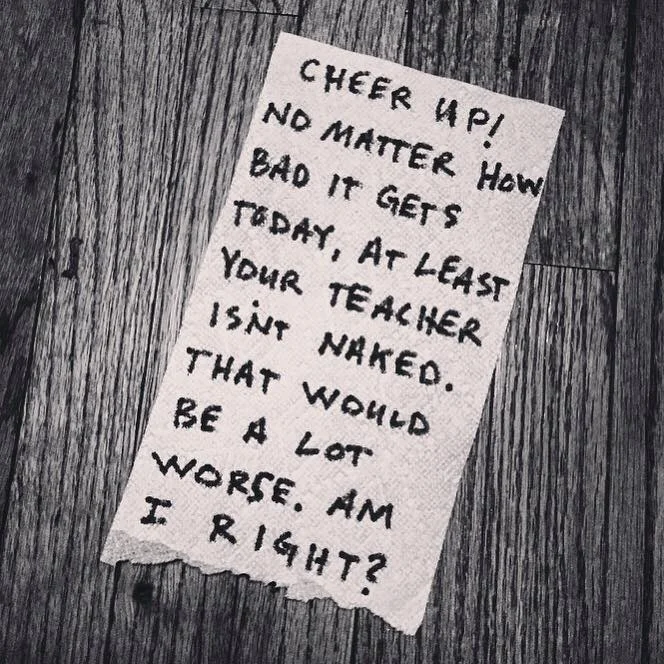 CHEER UP!
NO MATTER HOW
BAD IT GETS
TODAY, AT LEAST
YOUR TEACHER
ISNT NAKED.
THAT WOULD
BE A LOT
WORSE. AM
I RIGHT?